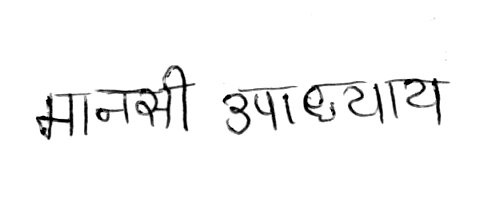 मानसी उपाध्याय